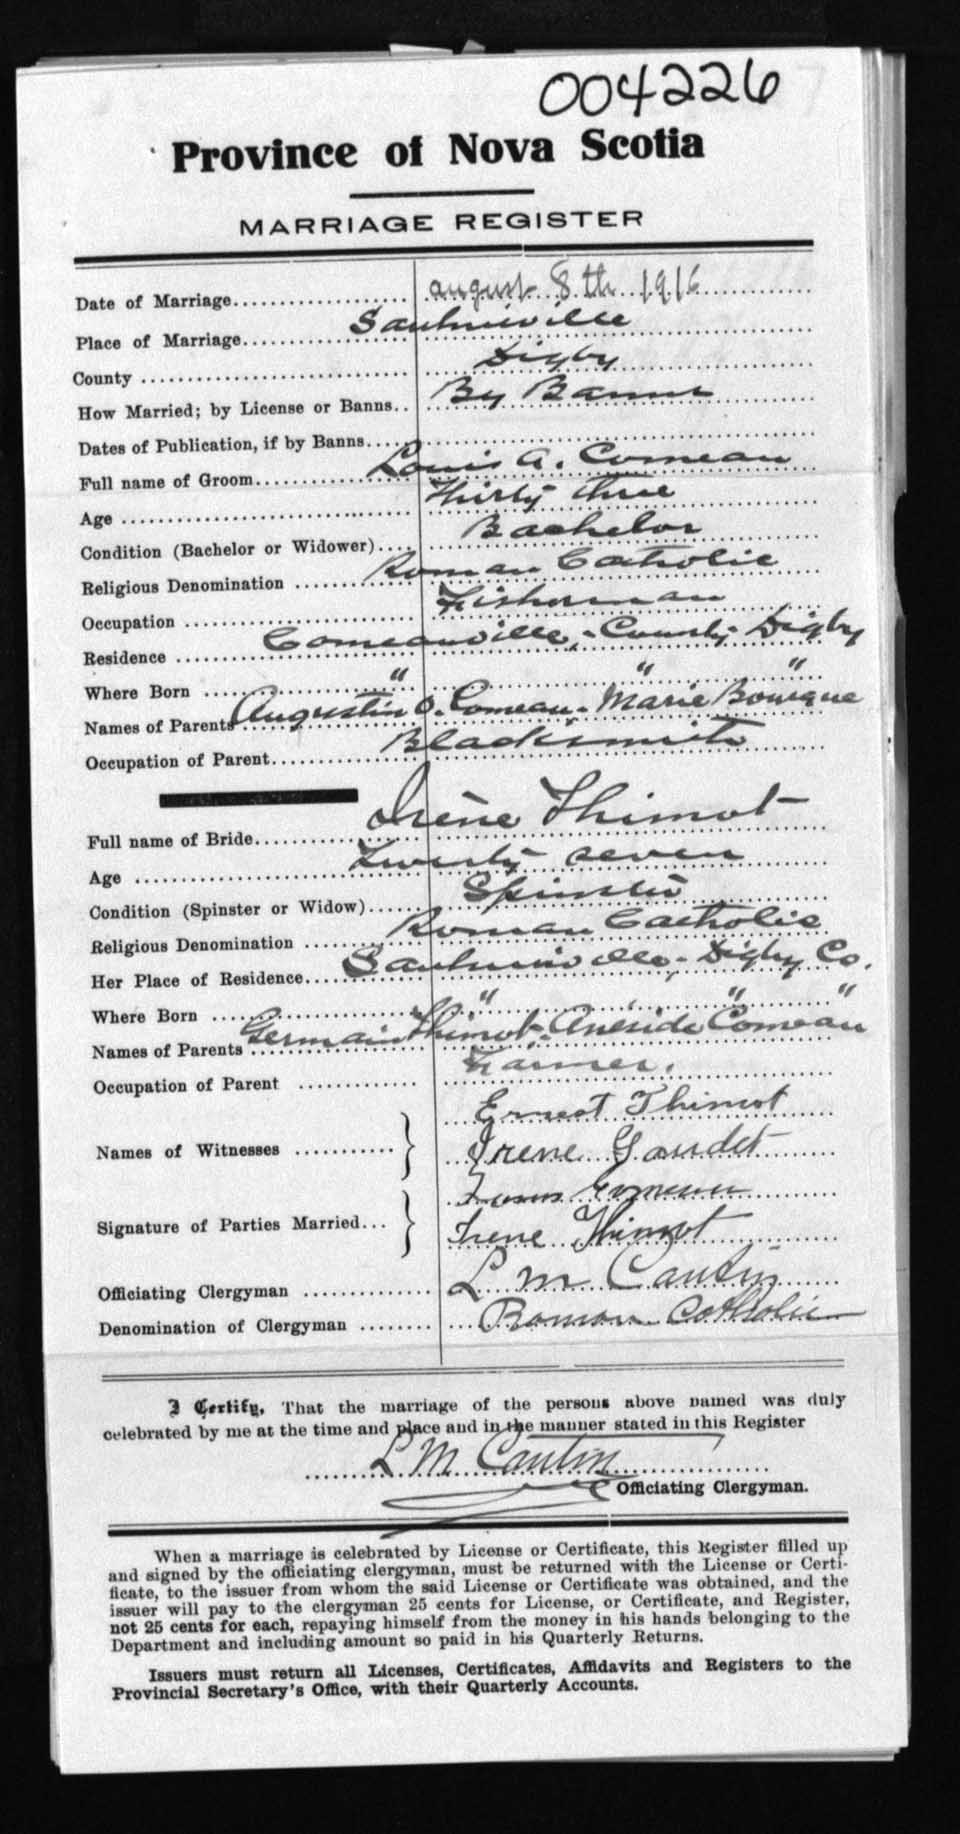 004226
Province of Nova Scotia
MARRIAGE REGISTER
Date of Marriage.................. august 8th 1916
Place of Marriage................. Saulnierville
County ........................... Digby
How Married; by License or Banns.. By Banns
Dates of Publication, if by Banns....
Full name of Groom................ Louis A. Comeau
Age .............................. Thirty three
Condition (Bachelor or Widower).... Bachelor
Religious Denomination ........... Roman Catholic
Occupation ....................... Fisherman
Residence ........................ Comeauville, County Digby
Where Born ....................... " " "
Names of Parents Augustin O. Comeau - Marie Bourque
Occupation of Parent.............. Blacksmith
Full name of Bride................ Irène Thimot
Age .............................. Twenty seven
Condition (Spinster or Widow)..... Spinster
Religious Denomination ........... Roman Catholic
Her Place of Residence............ Saulnierville, Digby Co.
Where Born ....................... " " "
Names of Parents Germain Thimot. Comeau
Occupation of Parent ............. Farmer.
Names of Witnesses ........... } Ernest Thimot
Irene Gaudet
Signature of Parties Married... } Louis Comeau
Irene Thimot
Officiating Clergyman ............ L M Cautin
Denomination of Clergyman ........ Roman Catholic
I Certify, That the marriage of the persons above named was duly
celebrated by me at the time and place and in the manner stated in this Register
L M Cautin
Officiating Clergyman.
When a marriage is celebrated by License or Certificate, this Register filled up
and signed by the officiating clergyman, must be returned with the License or Certi-
ficate, to the issuer from whom the said License or Certificate was obtained, and the
issuer will pay to the clergyman 25 cents for License, or Certificate, and Register,
not 25 cents for each, repaying himself from the money in his hands belonging to the
Department and including amount so paid in his Quarterly Returns.
Issuers must return all Licenses, Certificates, Affidavits and Registers to the
Provincial Secretary's Office, with their Quarterly Accounts.